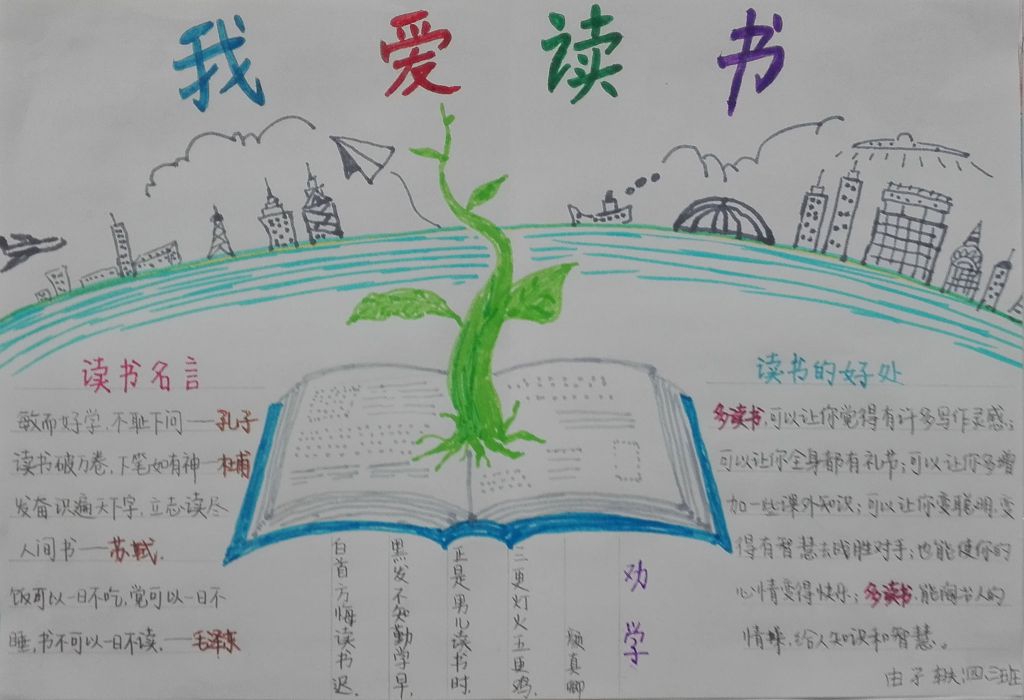 我 爱 读 书
读书名言
敏而好学，不耻下问——孔子
读书破万卷，下笔如有神—杜甫
发奋识遍天下字，立志读尽
人间书——苏轼.
饭可以一日不吃，觉可以一日不
睡，书不可以一日不读.——毛泽东
读书的好处
多读书，可以让你觉得有许多写作灵感；
可以让你全身都有礼节；可以让你多增
加一些课外知识；可以让你变聪明，变
得有智慧去战胜对手；也能使你的
心情变得快乐；多读书，能陶书人的
情操，给人知识和智慧。
劝学
颜真卿
三更灯火五更鸡，
正是男儿读书时.
黑发不知勤学早，
白首方悔读书迟.
由子轶 四.三班